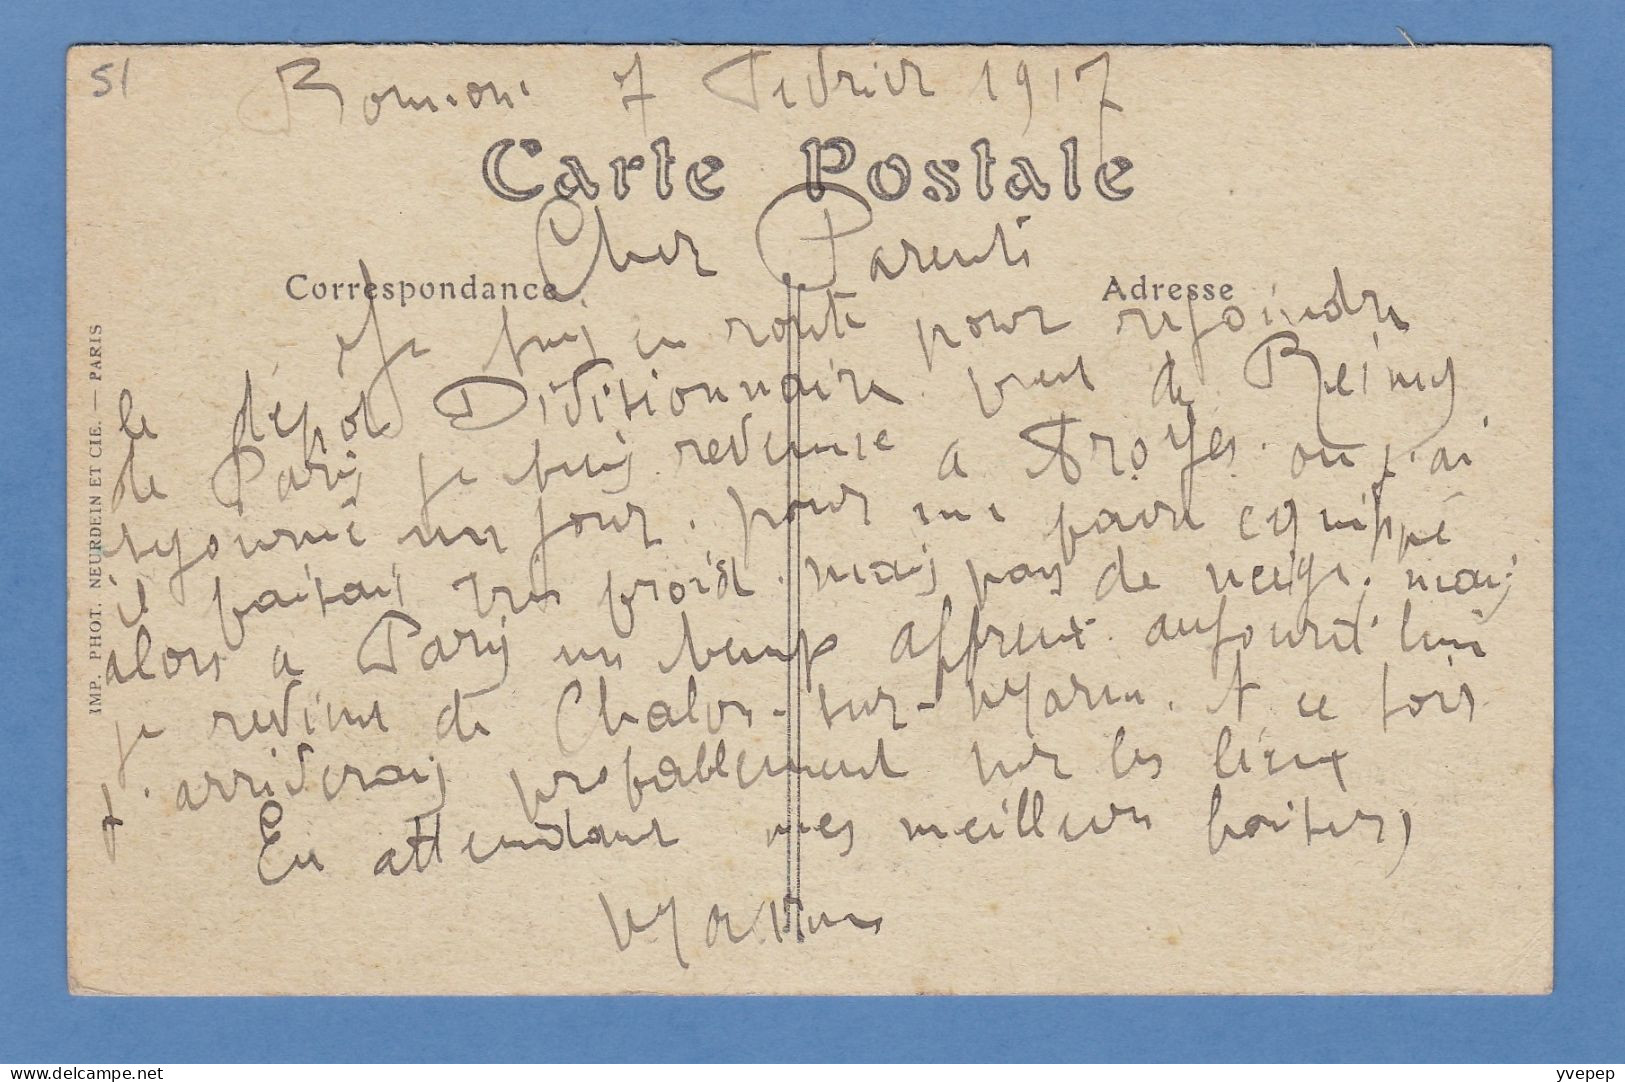 51
7 Fevrier 1917
Carte Postale
Cher Parents
Correspondance
Adresse
Je suis en route pour rejoindre
le dépot Divisionnaire pres de Reims
de Paris je suis revenue a Troyes. ou j'ai
sejourné un jour. pour me faire equippé
il faisais très froid. mais pas de neige. mais
alors a Paris un temps affreux. aujourd'hui
je reviens de Chalons-sur-Marne. A ce soir
j'arriverais probablement sur les lieux
En attendant mes meilleurs baisers,
IMP. PHOT. NEURDEIN ET CIE. — PARIS
www.delcampe.net
yvepep